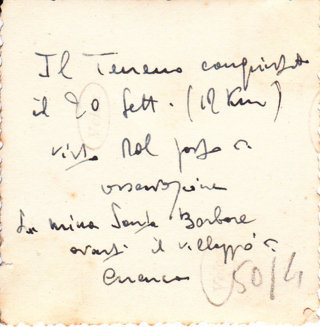 Il Terreno conquistato
il 20 Sett. (12 Km)
visto dal posto di
osservazione
La mina Santa Barbara
avanti il villaggio di
50/4